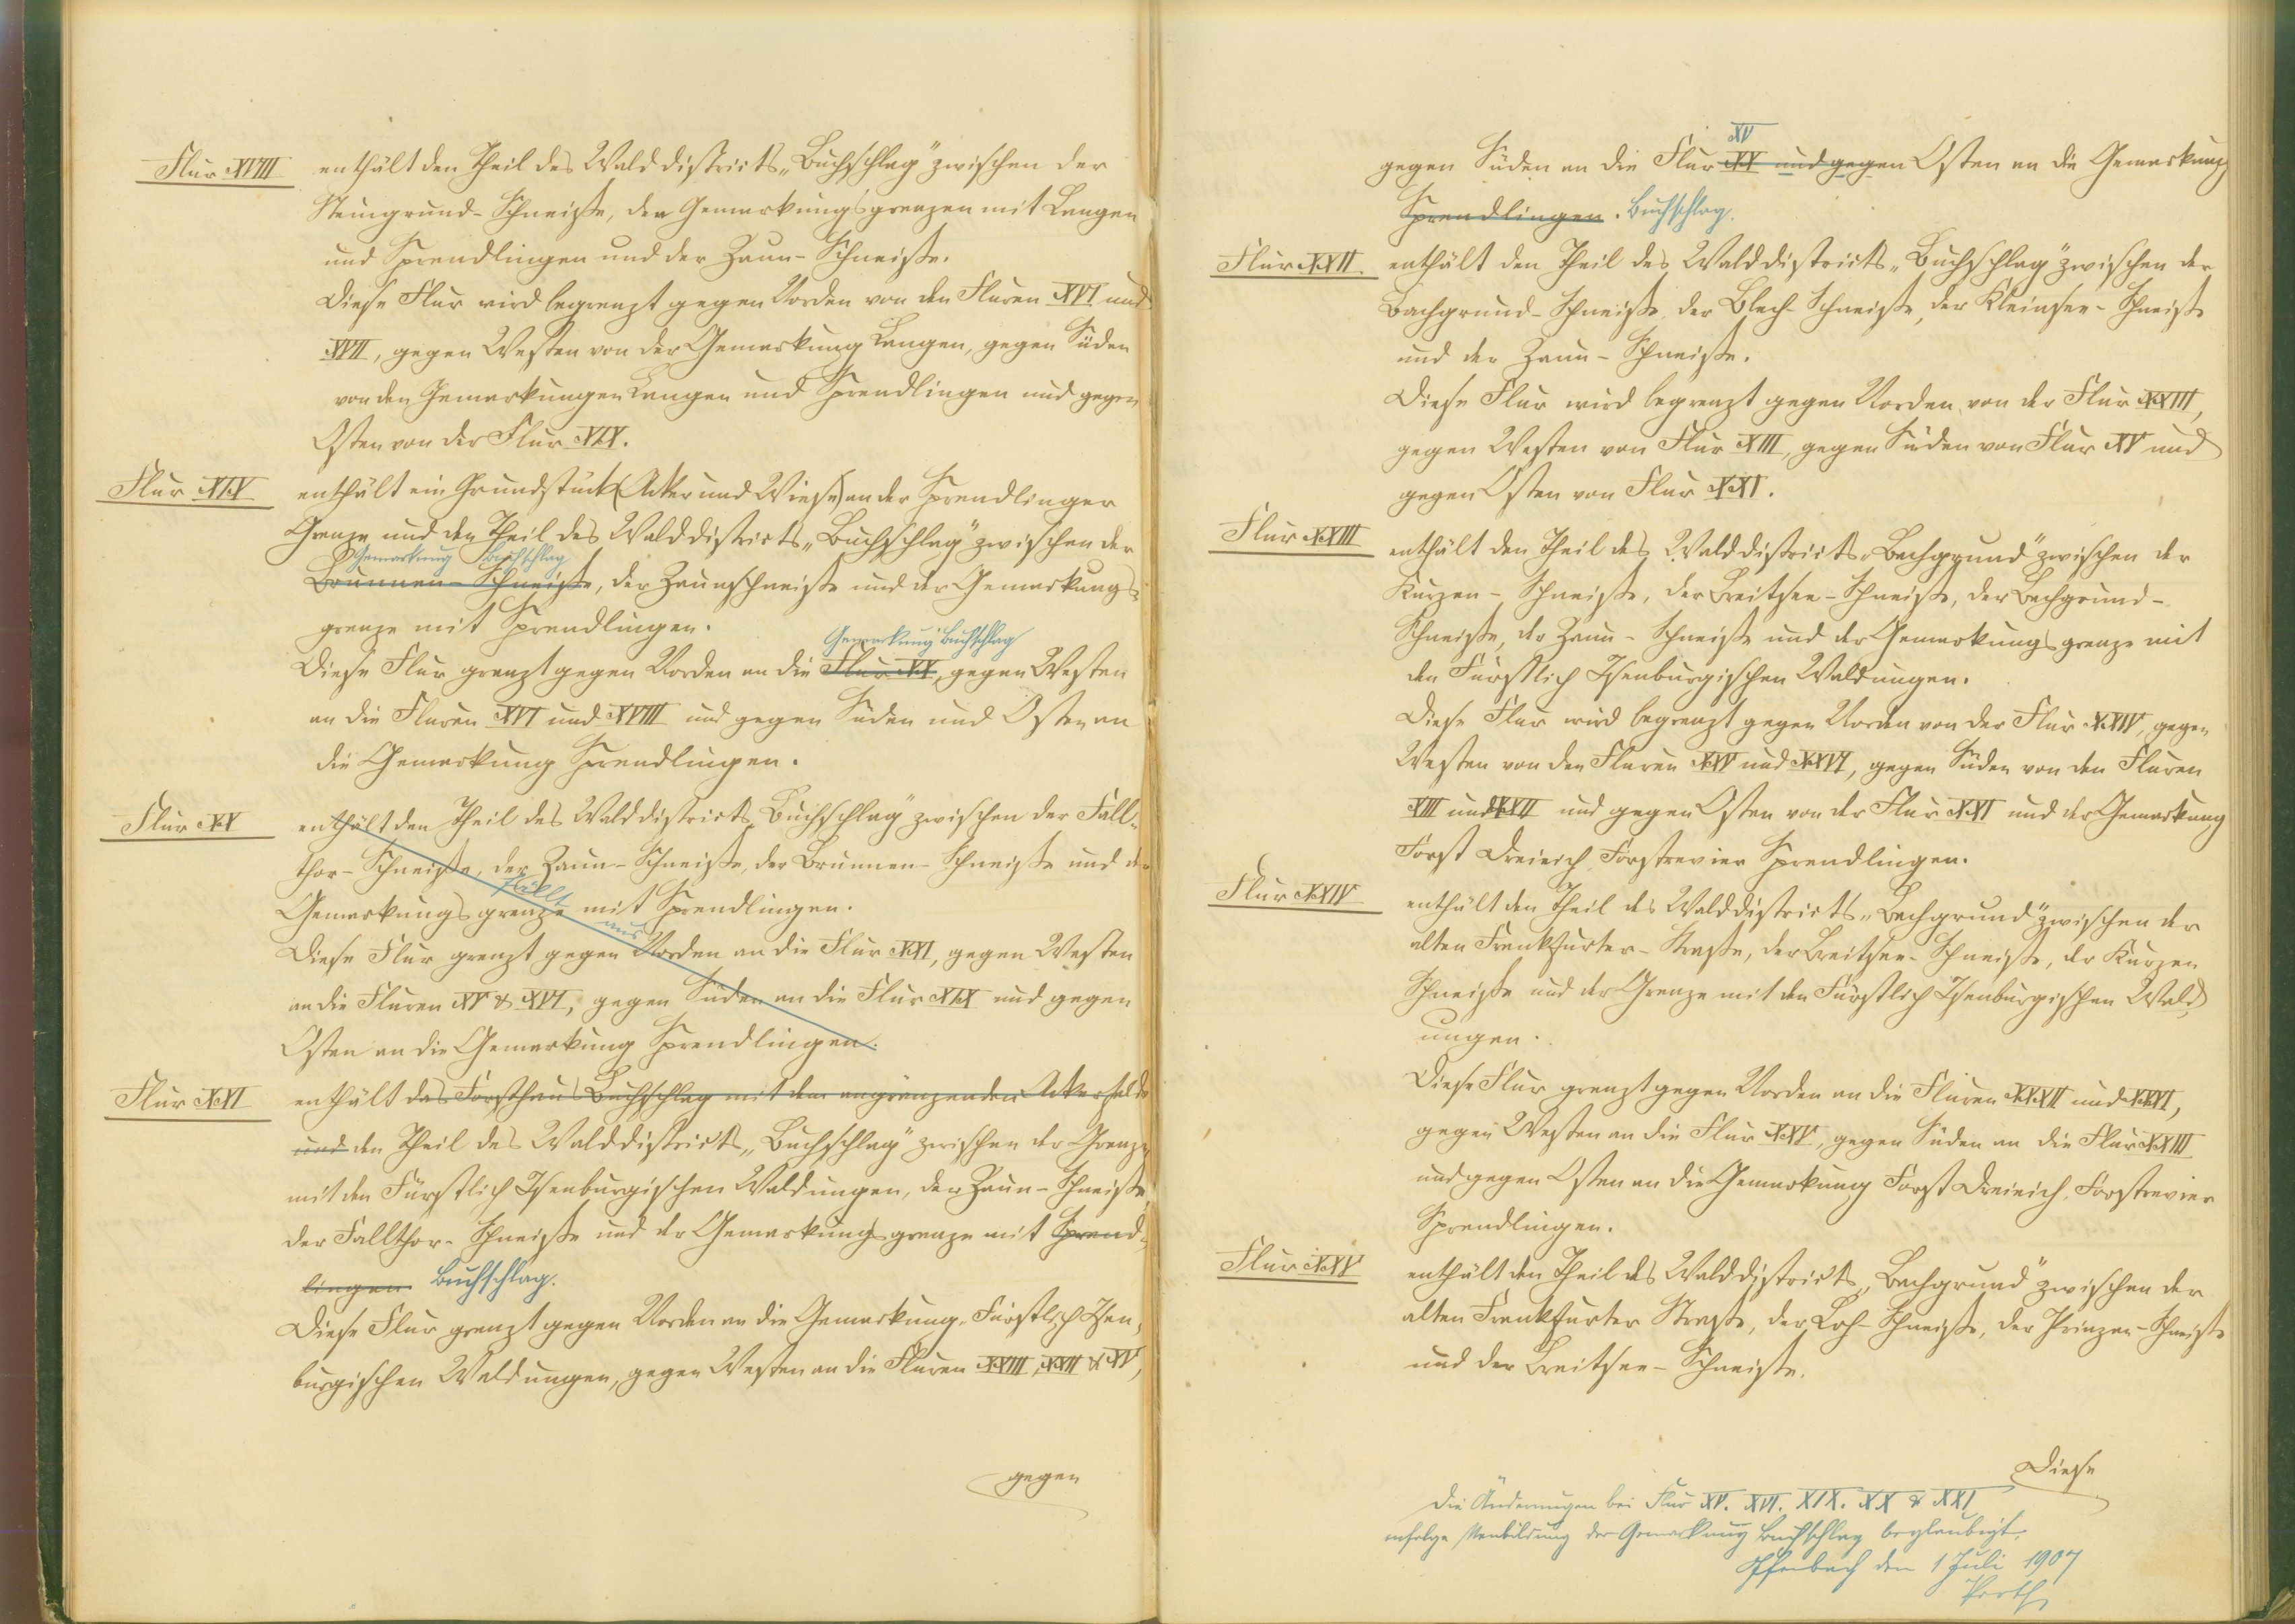 Flur XVIII enthält den Theil des Walddistricts „Buchschlag" zwischen der
Steingrund-Schneiße, den Gemarkungsgrenzen mit Langen
und Sprendlingen und der Zaun-Schneiße.
Diese Flur wird begrenzt gegen Norden von den Fluren XVI und
XVII, gegen Westen von der Gemarkung Langen, gegen Süden
von den Gemarkungen Langen und Sprendlingen und gegen
Osten von der Flur XIX.
Flur XIX enthält ein Grundstück (Acker und Wiese) an der Sprendlinger
Grenze und den Theil des Walddistricts „Buchschlag" zwischen der
Gemarkung Buchschlag
Brunnen-Schneiße, der Zaunschneiße und der Gemarkungs-
grenze mit Sprendlingen.
Gemarkung Buchschlag
Diese Flur grenzt gegen Norden an die Flur XX, gegen Westen
an die Fluren XVI und XVIII und gegen Süden und Osten an
die Gemarkung Sprendlingen.
Flur XX enthält den Theil des Walddistricts „Buchschlag" zwischen der Fall-
thor-Schneiße, der Zaun-Schneiße, der Brunnen-Schneiße und der
fällt
Gemarkungsgrenze mit Sprendlingen.
aus
Diese Flur grenzt gegen Norden an die Flur XXI, gegen Westen
an die Fluren XV & XVI, gegen Süden an die Flur XIX und gegen
Osten an die Gemarkung Sprendlingen.
Flur XXI enthält das Forsthaus Buchschlag mit dem angränzenden Ackerfelde
und den Theil des Walddistricts „Buchschlag" zwischen der Grenze
mit den Fürstlich Isenburgischen Waldungen, der Zaun-Schneiße,
der Fallthor-Schneiße und der Gemarkungsgrenze mit Sprend-
lingen Buchschlag.
Diese Flur grenzt gegen Norden an die Gemarkung Fürstlich Isen-
burgischen Waldungen, gegen Westen an die Fluren XXIII, XXII & XV,
gegen
XV
gegen Süden an die Flur XX und gegen Osten an die Gemarkung
Sprendlingen. Buchschlag.
Flur XXII enthält den Theil des Walddistricts „Buchschlag" zwischen der
Bachgrund-Schneiße, der Blech-Schneiße, der Kleinsee-Schneiße
und der Zaun-Schneiße.
Diese Flur wird begrenzt gegen Norden von der Flur XXIII,
gegen Westen von Flur XIII, gegen Süden von Flur XV und
gegen Osten von Flur XXI.
Flur XXIII enthält den Theil des Walddistricts „Bachgrund" zwischen der
Kurzen-Schneiße, der Breitsee-Schneiße, der Bachgrund-
Schneiße, der Zaun-Schneiße und der Gemarkungsgrenze mit
den Fürstlich Isenburgischen Waldungen.
Diese Flur wird begrenzt gegen Norden von der Flur XXIV, gegen
Westen von den Fluren XXV und XXVI, gegen Süden von den Fluren
XIII und XXII und gegen Osten von der Flur XXI und der Gemarkung
Forst Dreieich, Forstrevier Sprendlingen.
Flur XXIV enthält den Theil des Walddistricts „Bachgrund" zwischen der
alten Frankfurter-Straße, der Breitsee-Schneiße, der Kurzen
Schneiße und der Grenze mit den Fürstlich Isenburgischen Wald-
ungen.
Diese Flur grenzt gegen Norden an die Fluren XXXII und XXXI,
gegen Westen an die Flur XXV, gegen Süden an die Flur XXIII
und gegen Osten an die Gemarkung Forst Dreieich, Forstrevier
Sprendlingen.
Flur XXV enthält den Theil des Walddistricts „Bachgrund" zwischen der
alten Frankfurter Straße, der Loh-Schneiße, der Prinzen-Schneiße
und der Breitsee-Schneiße.
Diese
Die Änderungen bei Flur XV. XVI. XIX. XX & XXI
infolge Neubildung der Gemarkung Buchschlag beglaubigt.
Offenbach den 1 Juli 1907